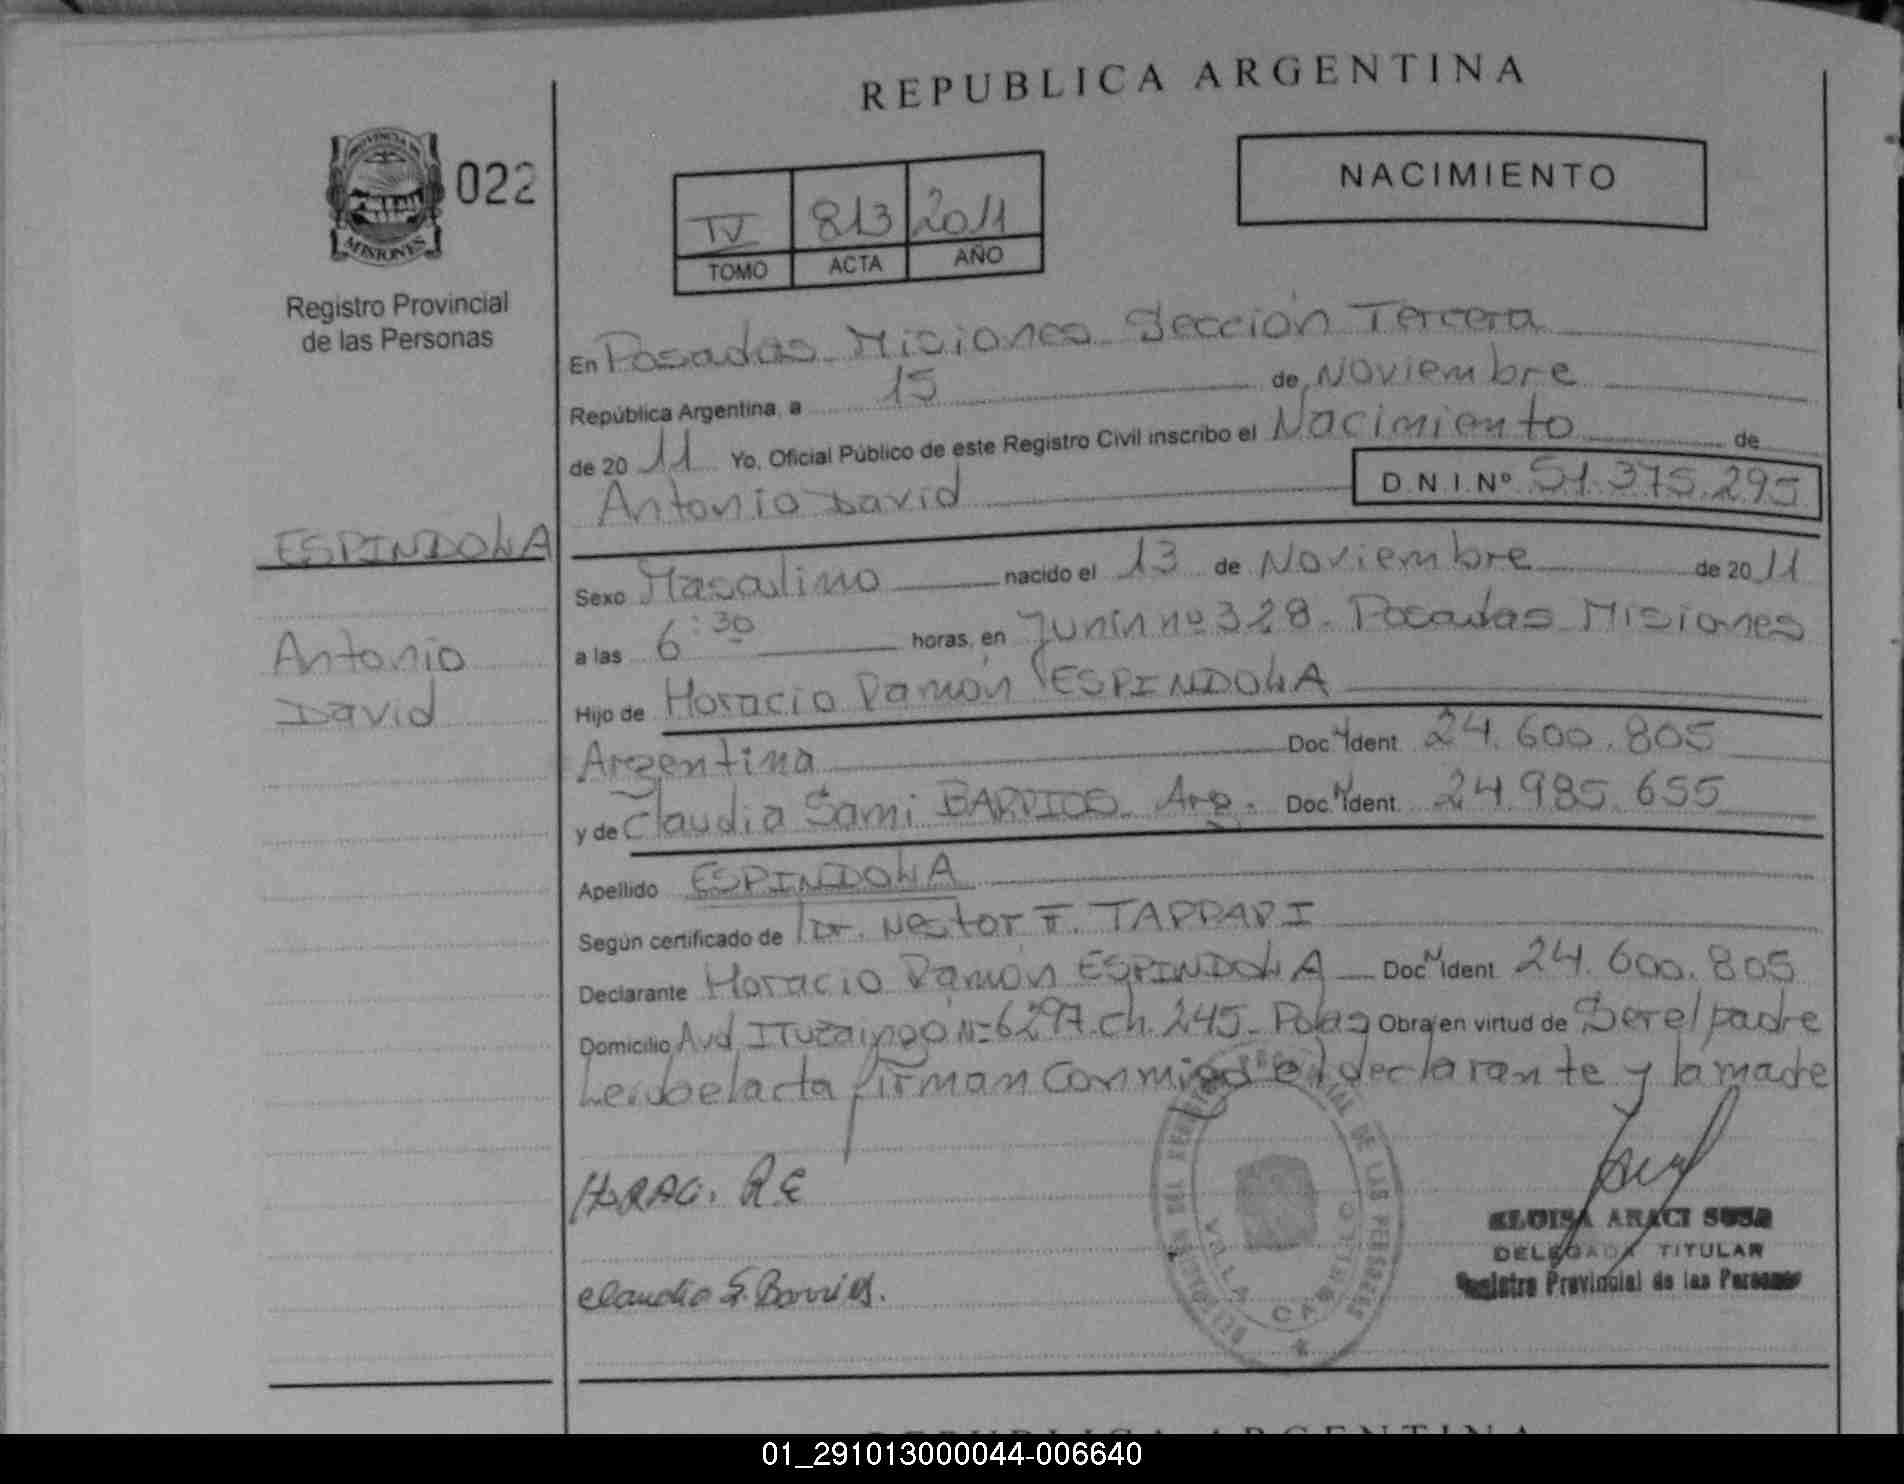 REPUBLICA ARGENTINA
PROVINCIA DE
MISIONES
022
Registro Provincial
de las Personas
NACIMIENTO
IV 813 2011
TOMO ACTA AÑO
En Posadas Misiones Sección Tercera
República Argentina, a 15 de Noviembre
de 2011 Yo, Oficial Público de este Registro Civil inscribo el Nacimiento de
Antonio David D.N.I.Nº 51.375.295
ESPINDOLA
Antonio
David
Sexo Masculino nacido el 13 de Noviembre de 2011
a las 6:30 horas, en Junín nº 328. Posadas Misiones
Hijo de Horacio Ramón ESPINDOLA
Argentina Doc. Ident. 24.600.805
y de Claudia Sami BARRIOS Arg. Doc. Ident. 24.985.655
Apellido ESPINDOLA
Según certificado de Dr. Nestor F. TARRARI
Declarante Horacio Ramón ESPINDOLA Doc. Ident. 24.600.805
Domicilio Avd. ITuzaingó Nº 6297. ch. 245. Pdas Obra en virtud de Ser el padre
Leída el acta firman conmigo el declarante y la madre
HORAC. R.E
Claudia S. Barrios.
DE LAS PERSONAS
ELOISA ARACI SOSA
DELEGADA TITULAR
Registro Provincial de las Personas
REPUBLICA ARGENTINA
01_291013000044-006640